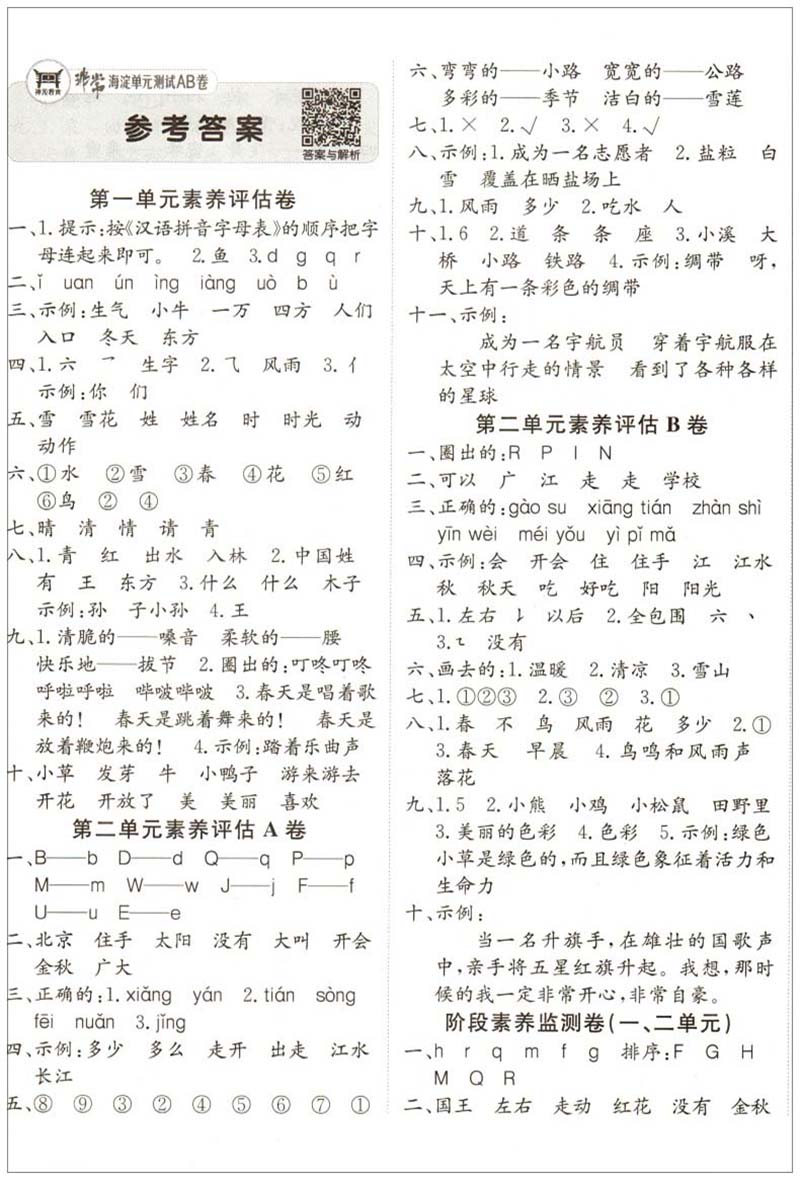 非常 海淀单元测试AB卷
神龙教育
参考答案
答案与解析
第一单元素养评估卷
一、1.提示:按《汉语拼音字母表》的顺序把字
母连起来即可。 2.鱼 3.d g q r
二、ǐ uan ún ìng iàng uò b ù
三、示例:生气 小牛 一万 四方 人们
入口 冬天 东方
四、1.六 乛 生字 2.⺄ 风雨 3.亻
示例:你 们
五、雪 雪花 姓 姓名 时 时光 动
动作
六、①水 ②雪 ③春 ④花 ⑤红
⑥鸟 ② ④
七、晴 清 情 请 青
八、1.青 红 出水 入林 2.中国姓
有 王 东方 3.什么 什么 木子
示例:孙 子小孙 4.王
九、1.清脆的——嗓音 柔软的——腰
快乐地——拔节 2.圈出的:叮咚叮咚
呼啦呼啦 哔啵哔啵 3.春天是唱着歌
来的! 春天是跳着舞来的! 春天是
放着鞭炮来的! 4.示例:踏着乐曲声
十、小草 发芽 牛 小鸭子 游来游去
开花 开放了 美 美丽 喜欢
第二单元素养评估 A 卷
一、B——b D——d Q——q P——p
M——m W——w J——j F——f
U——u E——e
二、北京 住手 太阳 没有 大叫 开会
金秋 广大
三、正确的:1.xiǎng yán 2.tián sòng
fēi nuǎn 3.jǐng
四、示例:多少 多么 走开 出走 江水
长江
五、⑧ ⑨ ③ ② ④ ⑤ ⑥ ⑦ ①
六、弯弯的——小路 宽宽的——公路
多彩的——季节 洁白的——雪莲
七、1.× 2.√ 3.× 4.√
八、示例:1.成为一名志愿者 2.盐粒 白
雪 覆盖在晒盐场上
九、1.风雨 多少 2.吃水 人
十、1.6 2.道 条 条 座 3.小溪 大
桥 小路 铁路 4.示例:绸带 呀,
天上有一条彩色的绸带
十一、示例:
成为一名宇航员 穿着宇航服在
太空中行走的情景 看到了各种各样
的星球
第二单元素养评估 B 卷
一、圈出的:R P I N
二、可以 广 江 走 走 学校
三、正确的:gào su xiāng tián zhàn shì
yīn wèi méi yǒu yì pǐ mǎ
四、示例:会 开会 住 住手 江 江水
秋 秋天 吃 好吃 阳 阳光
五、1.左右 𠄌 以后 2.全包围 六 丶
3.㇈ 没有
六、画去的:1.温暖 2.清凉 3.雪山
七、1.①②③ 2.③ ② 3.①
八、1.春 不 鸟 风雨 花 多少 2.①
3.春天 早晨 4.鸟鸣和风雨声
落花
九、1.5 2.小熊 小鸡 小松鼠 田野里
3.美丽的色彩 4.色彩 5.示例:绿色
小草是绿色的,而且绿色象征着活力和
生命力
十、示例:
当一名升旗手,在雄壮的国歌声
中,亲手将五星红旗升起。我想,那时
候的我一定非常开心,非常自豪。
阶段素养监测卷(一、二单元)
一、h r q m f g 排序:F G H
M Q R
二、国王 左右 走动 红花 没有 金秋